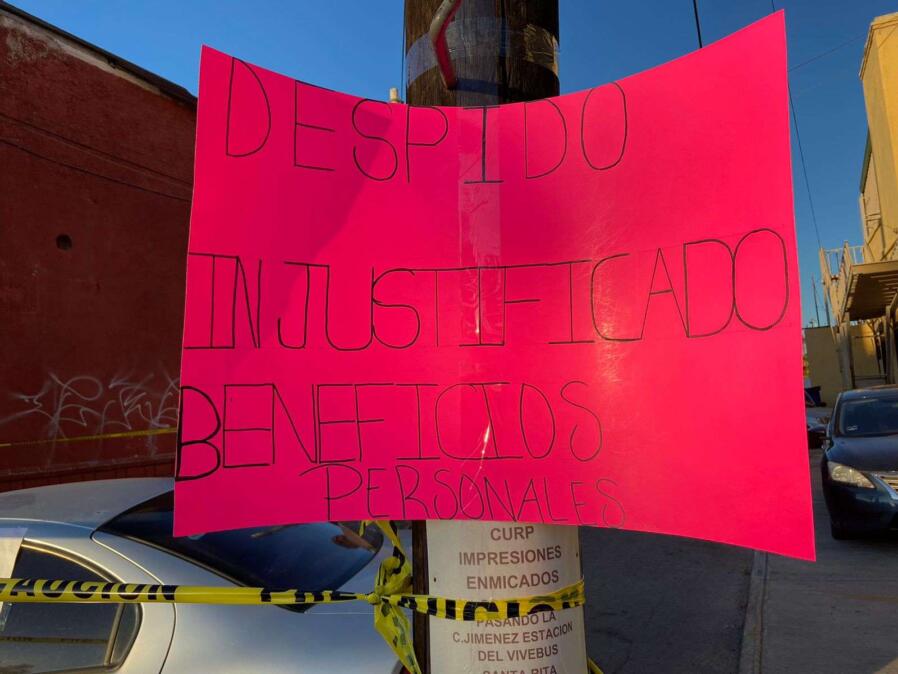 DESPIDO
INJUSTIFICADO
BENEFICIOS
PERSONALES
CURP
IMPRESIONES
ENMICADOS
AUCION
AUCIO
PASANDO LA
C.JIMENEZ ESTACION
DEL VIVEBUS
SANTA RITA